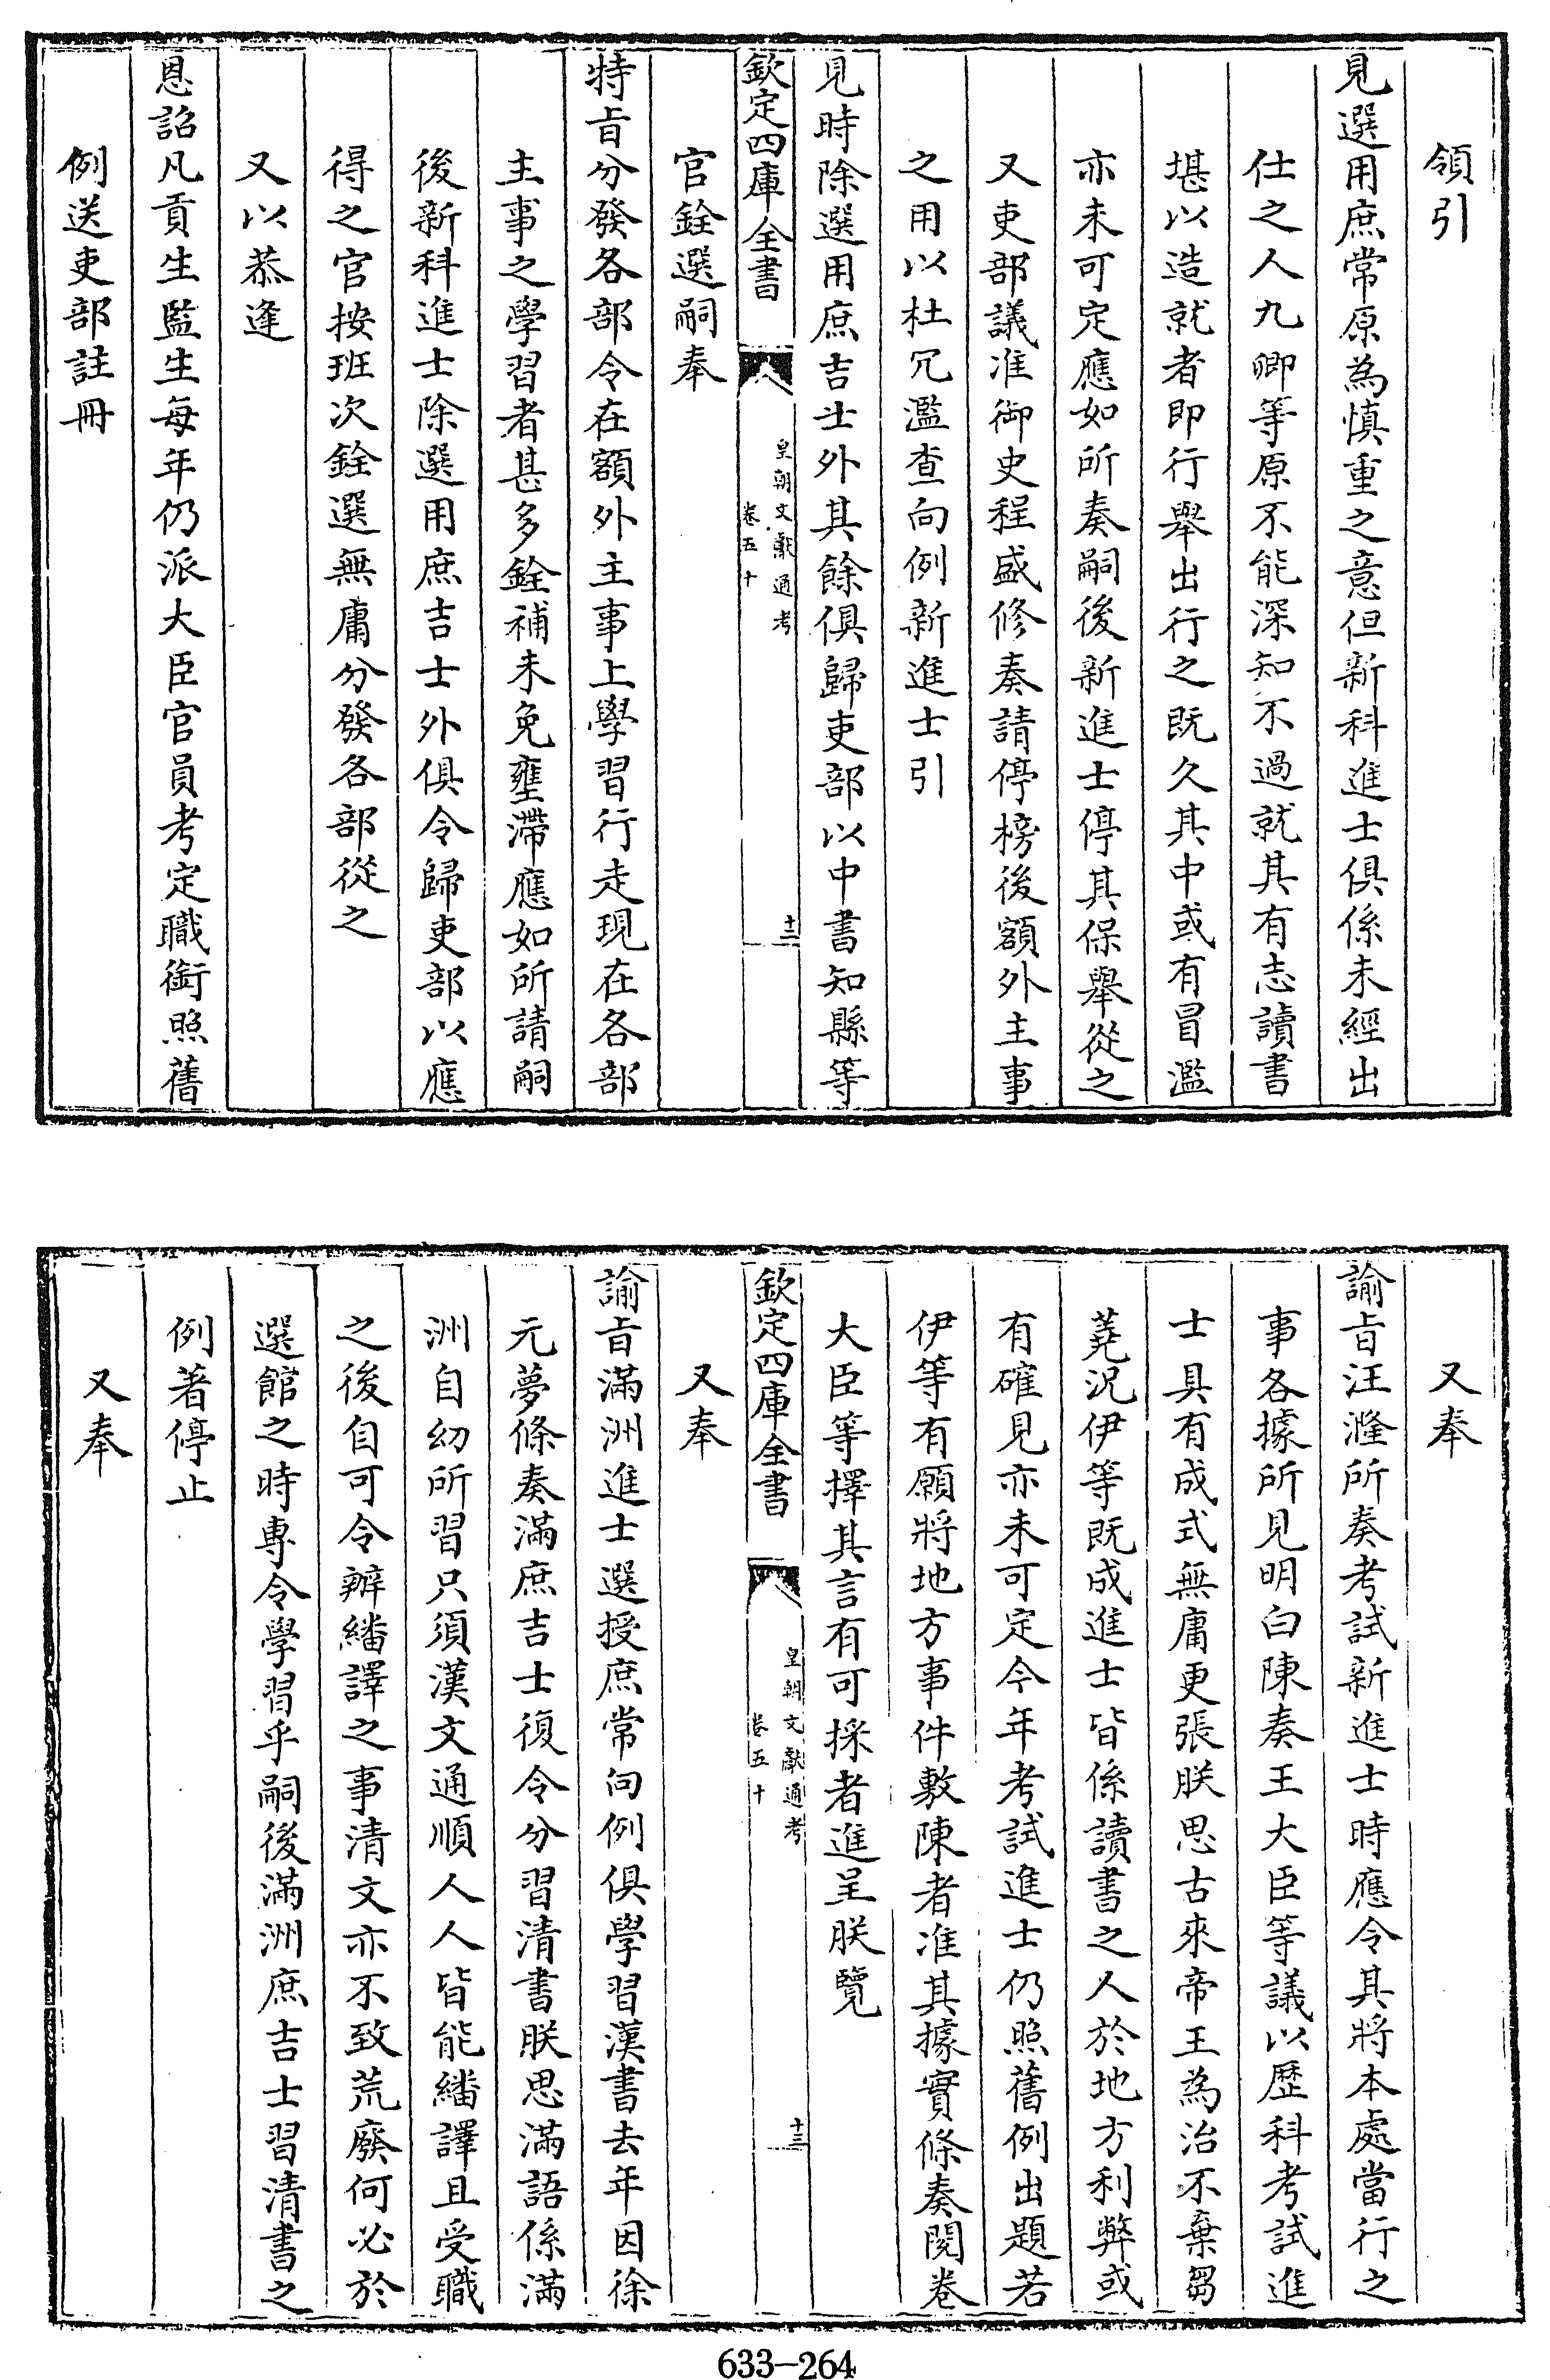 領引
見選用庶常原為慎重之意但新科進士俱係未經出
仕之人九卿等原不能深知不過就其有志讀書
堪以造就者即行舉出行之既久其中或有冒濫
亦未可定應如所奏嗣後新進士停其保舉從之
又吏部議准御史程盛修奏請停榜後額外主事
之用以杜冗濫查向例新進士引
見時除選用庶吉士外其餘俱歸吏部以中書知縣等
欽定四庫全書
皇朝文獻通考
卷五十
十二
官銓選嗣奉
特旨分發各部令在額外主事上學習行走現在各部
主事之學習者甚多銓補未免壅滯應如所請嗣
後新科進士除選用庶吉士外俱令歸吏部以應
得之官按班次銓選無庸分發各部從之
又以恭逢
恩詔凡貢生監生每年仍派大臣官員考定職銜照舊
例送吏部註冊
又奉
諭旨汪漋所奏考試新進士時應令其將本處當行之
事各據所見明白陳奏王大臣等議以歷科考試進
士具有成式無庸更張朕思古來帝王為治不棄芻
蕘況伊等既成進士皆係讀書之人於地方利弊或
有確見亦未可定今年考試進士仍照舊例出題若
伊等有願將地方事件敷陳者准其據實條奏閱卷
大臣等擇其言有可採者進呈朕覽
欽定四庫全書
皇朝文獻通考
卷五十
十三
又奉
諭旨滿洲進士選授庶常向例俱學習漢書去年因徐
元夢條奏滿庶吉士復令分習清書朕思滿語係滿
洲自幼所習只須漢文通順人人皆能繙譯且受職
之後自可令辦繙譯之事清文亦不致荒廢何必於
選館之時專令學習乎嗣後滿洲庶吉士習清書之
例著停止
又奉
633-264